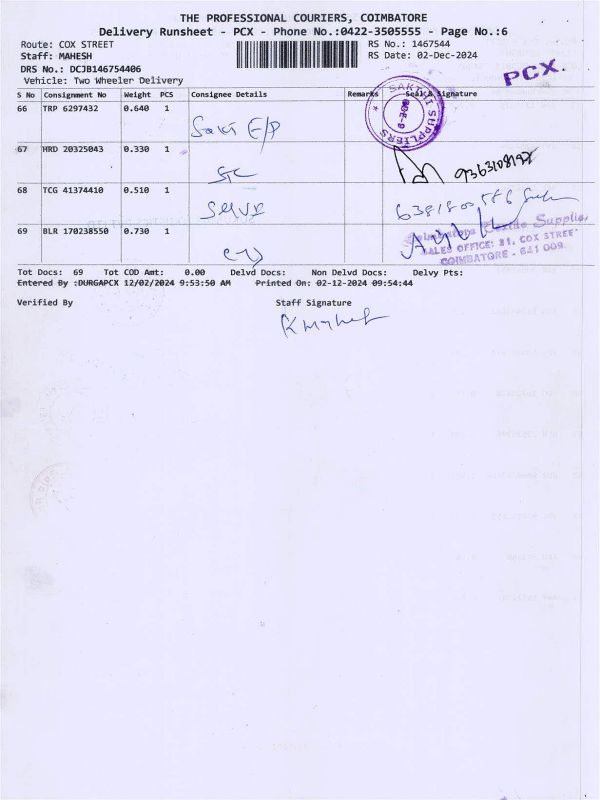 THE PROFESSIONAL COURIERS, COIMBATORE
Delivery Runsheet - PCX - Phone No.:0422-3505555 - Page No.:6
Route: COX STREET
RS No.: 1467544
Staff: MAHESH
RS Date: 02-Dec-2024
DRS No.: DCJB146754406
PCX.
Vehicle: Two Wheeler Delivery
S No Consignment No Weight PCS Consignee Details Remarks Seal & Signature
66 TRP 6297432 0.640 1
SAKTHI SUPPLIERS
67 MRD 20325043 0.330 1
9363108192
68 TCG 41374410 0.510 1
69 BLR 170238550 0.730 1
SALES OFFICE: 31, COX STREET
COIMBATORE - 641 009.
Tot Docs: 69 Tot COD Amt: 0.00 Delvd Docs: Non Delvd Docs: Delvy Pts:
Entered By :DURGAPCX 12/02/2024 9:53:50 AM Printed On: 02-12-2024 09:54:44
Verified By Staff Signature